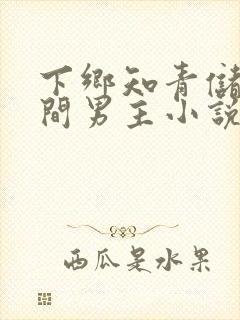 下鄉知青儲
間男主小說
西瓜是水果